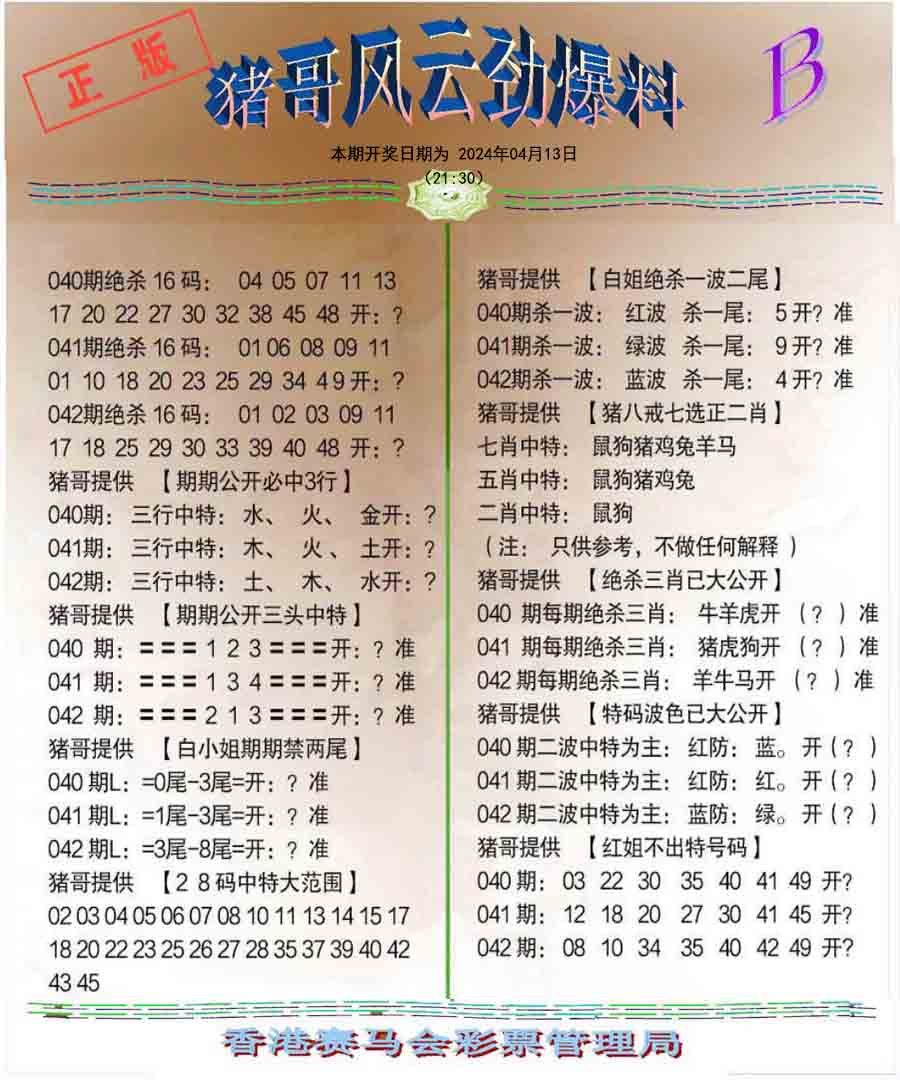 正版
猪哥风云劲爆料
B
本期开奖日期为 2024年04月13日
(21:30)
040期绝杀16码: 04 05 07 11 13
17 20 22 27 30 32 38 45 48 开:?
041期绝杀16码: 01 06 08 09 11
01 10 18 20 23 25 29 34 49开:?
042期绝杀16码: 01 02 03 09 11
17 18 25 29 30 33 39 40 48 开:?
猪哥提供 【期期公开必中3行】
040期: 三行中特: 水、 火、 金开:?
041期: 三行中特: 木、 火、 土开:?
042期: 三行中特: 土、 木、 水开:?
猪哥提供 【期期公开三头中特】
040 期: 〓〓〓123〓〓〓开:? 准
041 期: 〓〓〓134〓〓〓开:? 准
042 期: 〓〓〓213〓〓〓开:? 准
猪哥提供 【白小姐期期禁两尾】
040期L: =0尾-3尾=开:? 准
041期L: =1尾-3尾=开:? 准
042期L: =3尾-8尾=开:? 准
猪哥提供 【28码中特大范围】
02 03 04 05 06 07 08 10 11 13 14 15 17
18 20 22 23 25 26 27 28 35 37 39 40 42
43 45
猪哥提供 【白姐绝杀一波二尾】
040期杀一波: 红波 杀一尾: 5开? 准
041期杀一波: 绿波 杀一尾: 9开? 准
042期杀一波: 蓝波 杀一尾: 4开? 准
猪哥提供 【猪八戒七选正二肖】
七肖中特: 鼠狗猪鸡兔羊马
五肖中特: 鼠狗猪鸡兔
二肖中特: 鼠狗
(注: 只供参考,不做任何解释)
猪哥提供 【绝杀三肖已大公开】
040 期每期绝杀三肖: 牛羊虎开 (?)准
041 期每期绝杀三肖: 猪虎狗开 (?)准
042 期每期绝杀三肖: 羊牛马开 (?)准
猪哥提供 【特码波色已大公开】
040期二波中特为主: 红防: 蓝。开(?)
041期二波中特为主: 红防: 红。开(?)
042期二波中特为主: 蓝防: 绿。开(?)
猪哥提供 【红姐不出特号码】
040期: 03 22 30 35 40 41 49 开?
041期: 12 18 20 27 30 41 45 开?
042期: 08 10 34 35 40 42 49 开?
香港赛马会彩票管理局